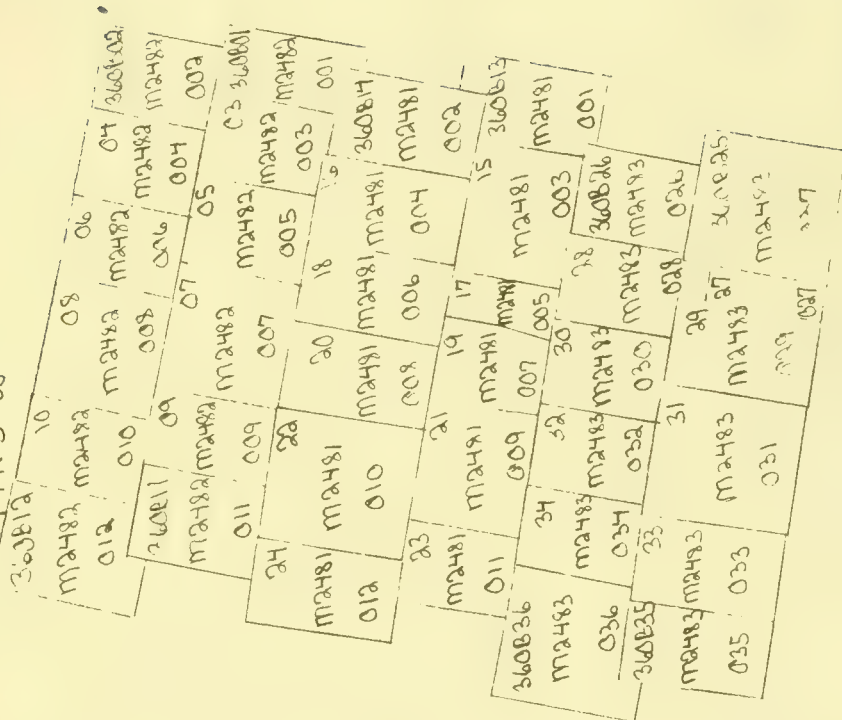 360B12
m2482
012
10
m2482
010
08
m2482
008
06
m2482
006
04
m2482
004
360B02
m2482
002
360B11
m2482
011
09
m2482
009
07
m2482
007
05
m2482
005
03
m2482
003
360B01
m2482
001
24
m2481
012
22
m2481
010
20
m2481
008
18
m2481
006
16
m2481
004
360B14
m2481
002
23
m2481
011
21
m2481
009
19
m2481
007
17
m2481
005
15
m2481
003
360B13
m2481
001
360B36
m2483
036
34
m2483
034
32
m2483
032
30
m2483
030
28
m2483
028
360B26
m2483
026
360B35
m2483
035
33
m2483
033
31
m2483
031
29
27
m2483
029
027
360B25
m2483